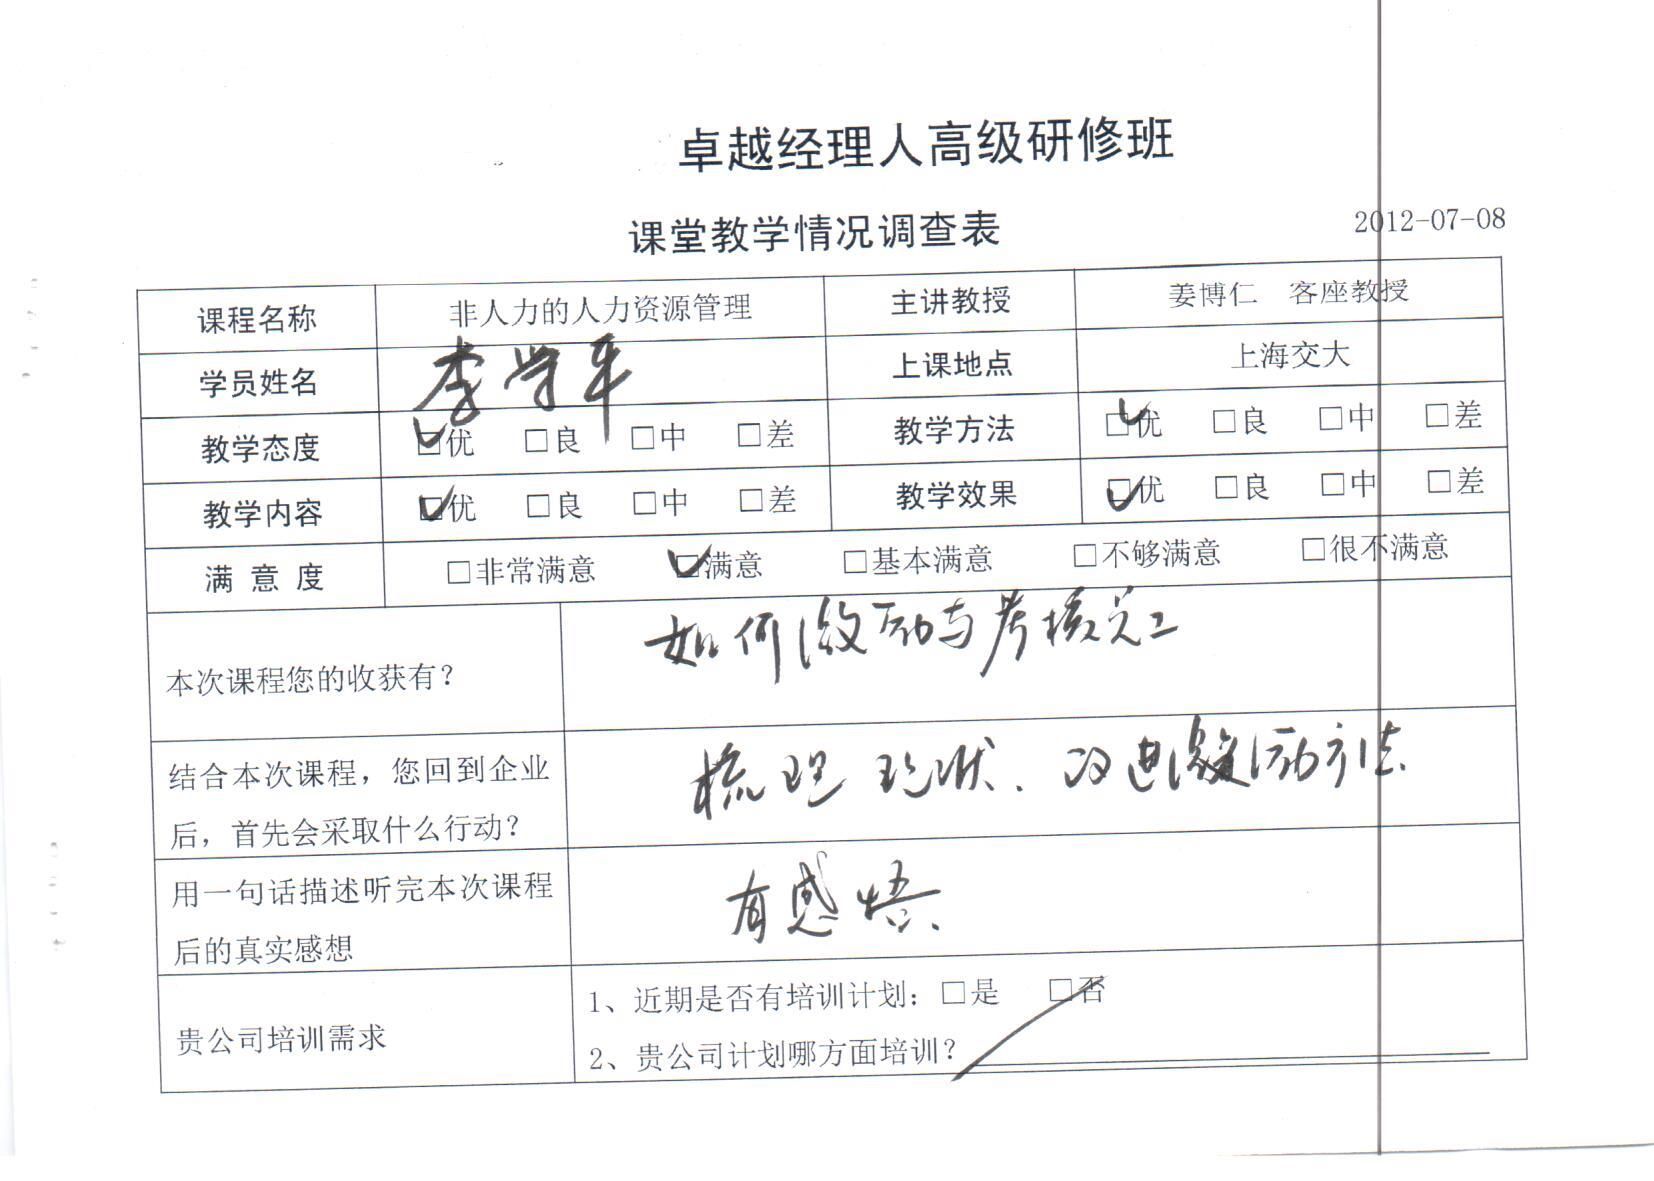 卓越经理人高级研修班
课堂教学情况调查表 2012-07-08
课程名称 非人力的人力资源管理 主讲教授 姜博仁 客座教授
学员姓名 李学平 上课地点 上海交大
教学态度 ☑优 □良 □中 □差 教学方法 ☑优 □良 □中 □差
教学内容 ☑优 □良 □中 □差 教学效果 ☑优 □良 □中 □差
满意度 □非常满意 ☑满意 □基本满意 □不够满意 □很不满意
本次课程您的收获有？ 如何激励与考核员工
结合本次课程，您回到企业
后，首先会采取什么行动？
梳理现状、改进激励方法.
用一句话描述听完本次课程
后的真实感想
有感悟.
贵公司培训需求
1、近期是否有培训计划：□是 □否
2、贵公司计划哪方面培训？